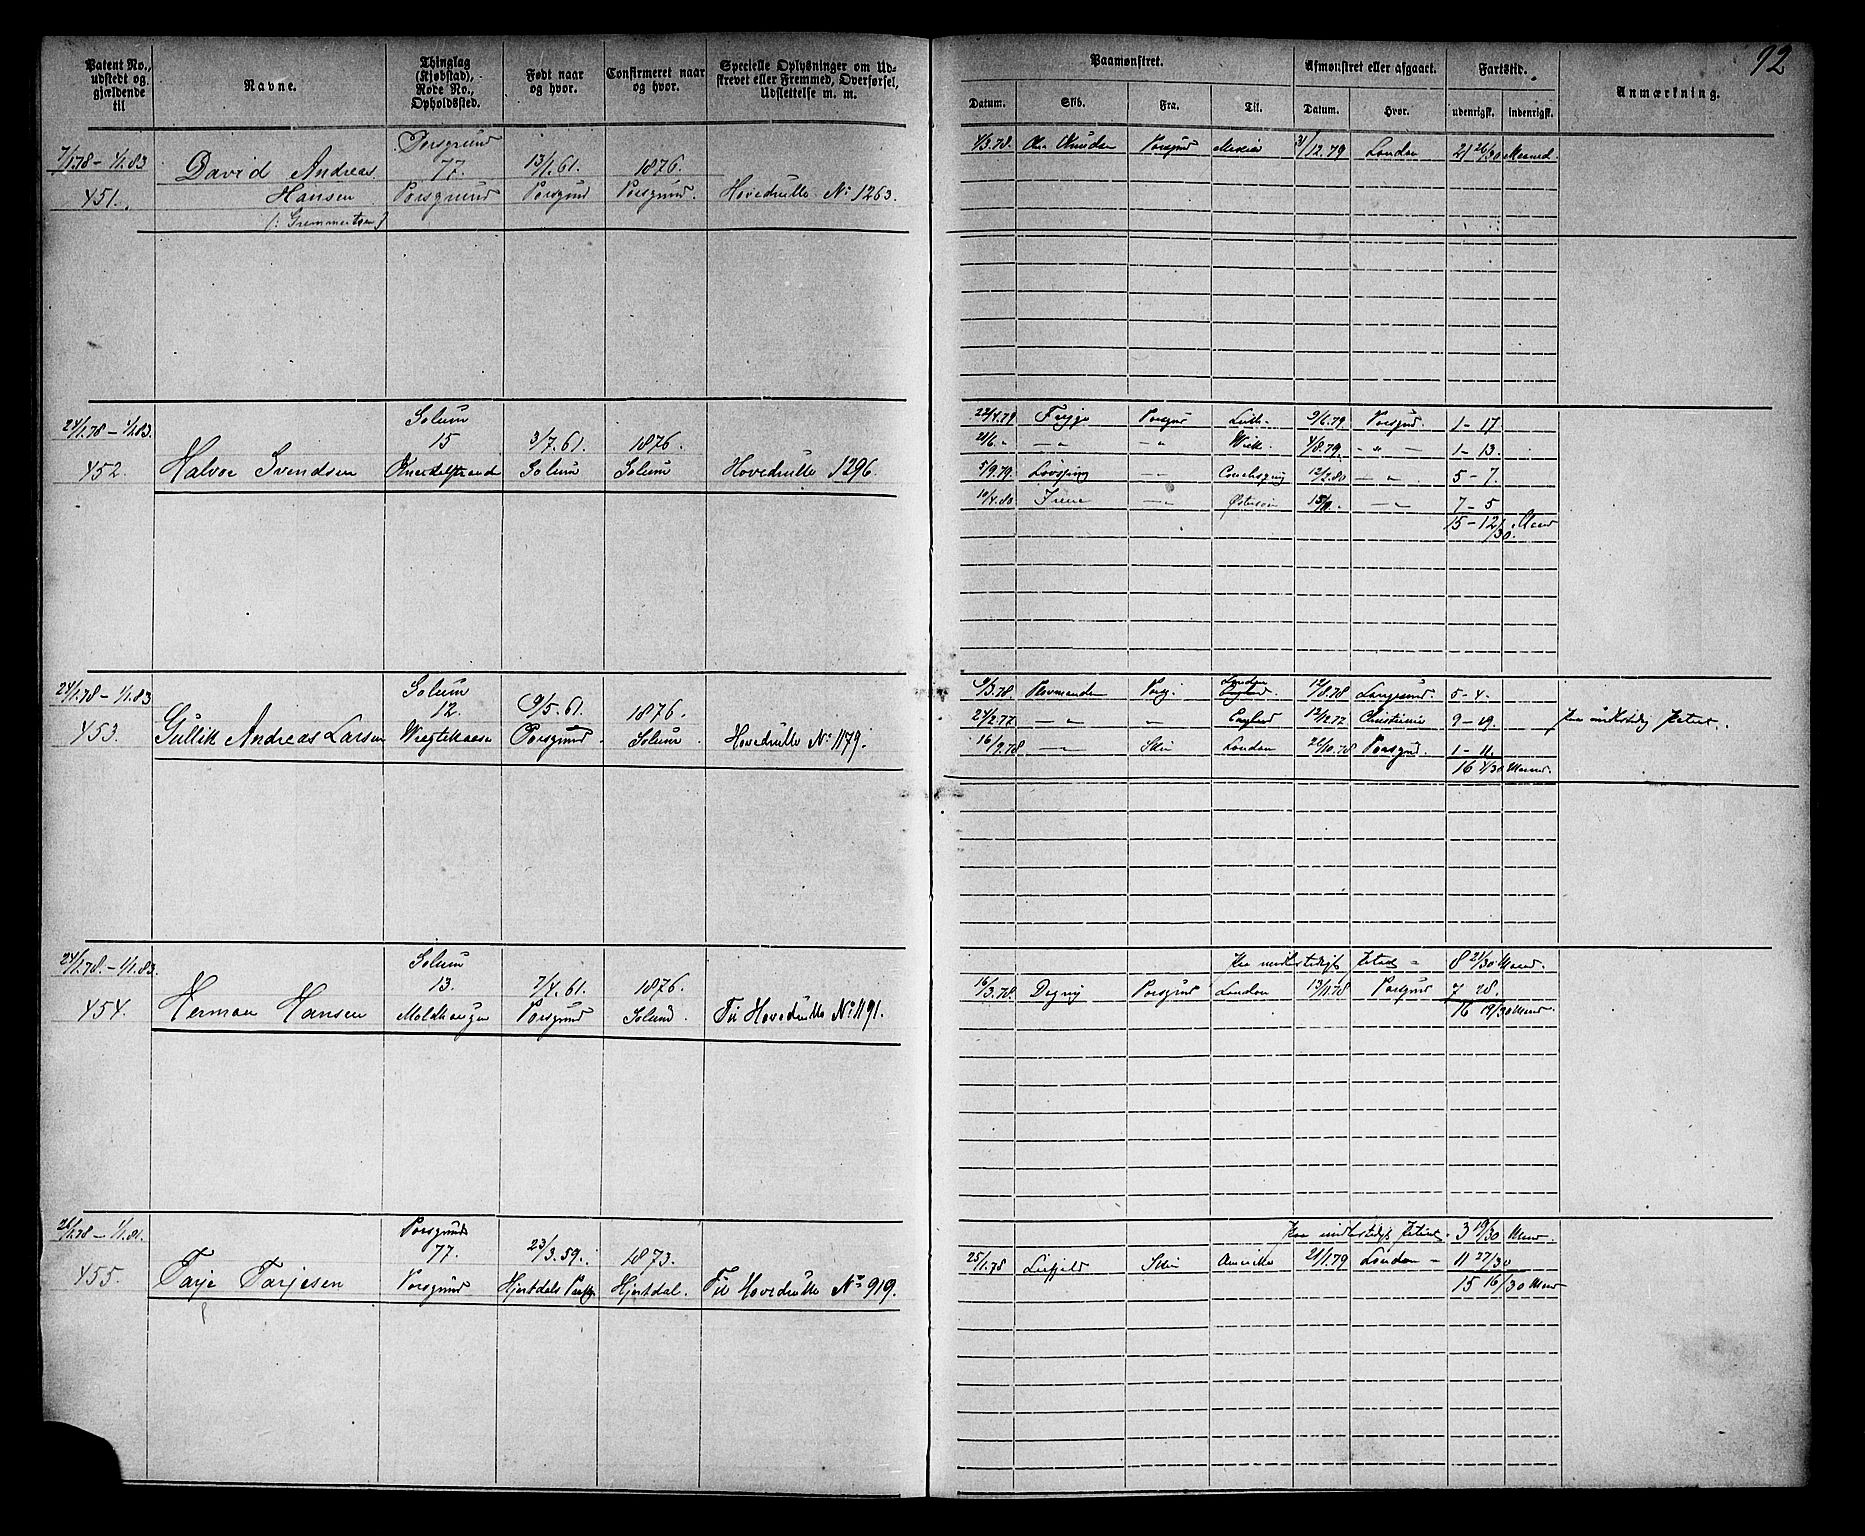 92
Patent No., udstedt og gjældende til
Navne.
Thinglag (Kjøbstad), Rode No., Opholdssted.
Født naar og hvor.
Confirmeret naar og hvor.
Specielle Oplysninger om Udskrevet eller Fremmed, Overførsel, Udslettelse m. m.
Paamønstret.
Afmønstret eller afgaaet.
Fartstid.
Anmærkning.
Datum. Skib. Fra. Til. Datum. Hvor. udenrigsk. indenrigsk.
7/1.78 – 1/1.83 Porsgrund
David Andreas 77. 13/1.61. 1876.
451. Hansen Porsgrund Porsgund Porsgrund. Hovedrulle No 1263.
4/3.78. Porsgrd Mexico 31/12.79 London 21 26/30 Maaned
24/1.78 – 1/1.83. Solum
15 3/7.61. 1876.
452. Halvor Svendsen Solum Solum Hovedrulle 1296
22/4.79 Porsgrd Leith 9/6.79 Porsgrd. 1 – 17
21/6 „ – „ – „ 4/8.79. – „ – 1 – 13.
5/9.79. – „ 12/2.80 – „ 5 – 7.
10/4.80. Irene – „ Østersøn – „ 7 – 5
15 – 12/30. Maand
24/1.78 – 1/1.83 Solum
12. 9/5.61. 1876.
453. Gullik Andreas Larsen Porsgrund. Solum Hovedrulle No 1179.
9/3.78. Porsg. London England 12/8.78 Langesund. 5 – 4.
24/2.77. – „ „ England 12/12.77 Christiania 9 – 19.
16/9.78 – „ Skien London 26/10.78 Porsgrd. 1 – 11.
16 4/30 Maand.
24/1.78. – 1/1.83. Solum
13. 7/4.61. 1876.
454. Herman Hansen Moldhaugen Porsgrund Solum. Til Hovedrulle No 1191.
8 21/30 Maand.
16/3.78. Dagny Porsgrund London 13/11.78 Porsgrund 7 28.
16 19/30 Maand.
26/1.78 – 1/1.81. Porsgrund
77. 23/3.59. 1873.
455. Tarje Tarjesen Porsgrund Hjertdals Hjertdal. Til Hovedrulle No 919.
3 19/30 Maand.
25/1.78 Liefjeld Skien Amerika 21/1.79 London – 11 27/30
15 16/30 Maand